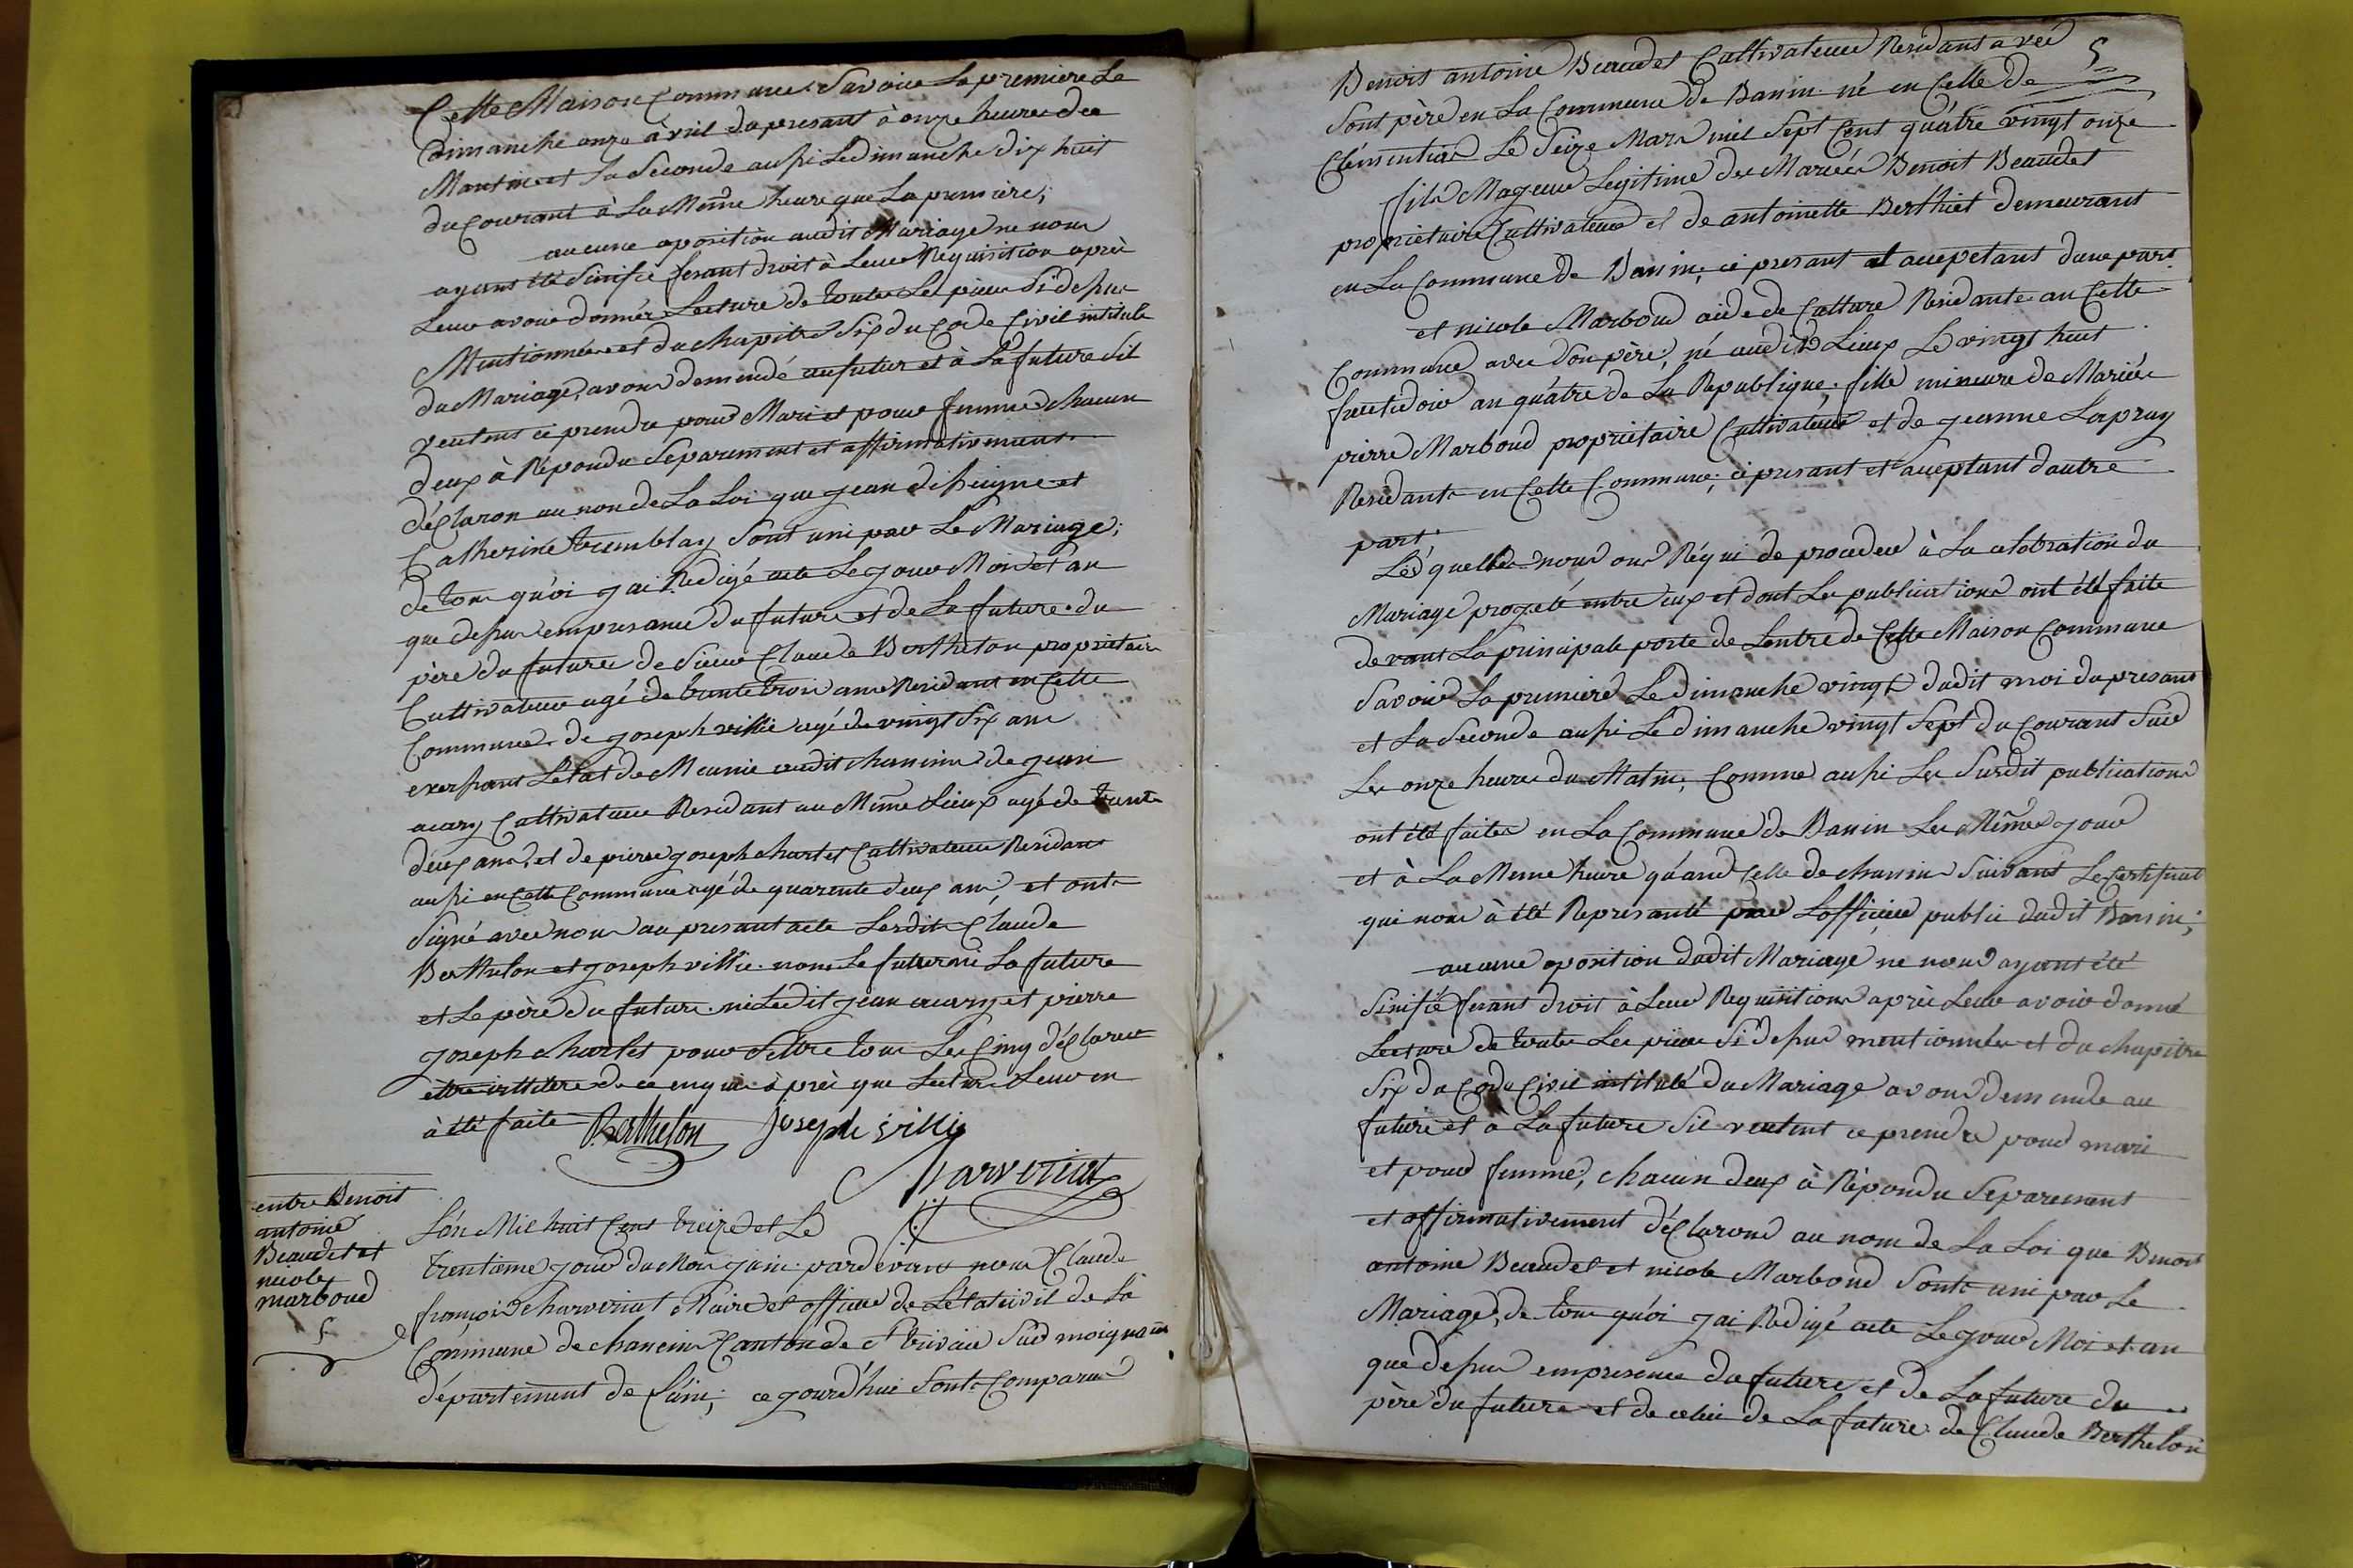 Cette Maison Commune. Savoir La premiere Le
Dimanche onze avril du presant à onze heures du
Mantin et La Seconde aussi Le dimanche dix huit
du Courant à La Même heure que La premiere;
aucune oposition audit Mariage ne nous
ayant été Sinifié ferant droit à Leur Requisition après
Leur avoir donnér Lecture de toutes Les pieces Si dessus
Mentionnées et du chapitre Six du Code Civil intitulé
du Mariage, avons demendé au futur et à La future Sil
veulent ce prendre pour Mari et pour femme chacun
deux à Répondu Séparement et affirmativement
déClaron au non de La Loi que jean
Catherine tremblay Sont uni par Le Mariage;
de tous quoi jai Redigé acte Le jour Mois et an
que dessus empresance du future et de La future du
père du future de Sieur Claude Berthelon proprietaire
Cultivateur agé de trante trois ans Residant en Cette
Commune. de joseph villie agé de vingt Six ans
exersant Letat de Meunie audit chanins de jean
acary Cultivateur Residant au Même Lieux agé de trante
deux ans, et de pierre joseph charlet Cultivateur Residant
aussi en Cette Commune agé de quarente deux ans, et ont
Signé avec nous au presant acte Lesdits Claude
Berthelon et joseph villie. non Le futur ni La future
et Le père du future. ni Ledit jean acary et pierre
joseph charlet pour Settre tous Les Cinq déClaré
ettre illitere de ce enquis après que Lecture Leur en
à été faite Berthelon joseph villie
Charvériat
entre Benoit
antoine
Beaudet et
nicole
marboud
5
Lan Mil huit Cent treize et Le
trentieme jour du Mois juin. pardevant nous Claude
françois charveriat Maire et officier de Létat civil de La
Commune de chanein Canton de St trivier Sur moignans
département de Lain; ce jourd'hui Sont Comparus
5
Benoit antoine Beaudet Cultivateur Residant avec
Sont père en La Commune de Banin né en Celle de
Clémentias Le Seize Mars mil Sept Cent quatre vingt onze
fils Mageur Legitime des Mariés Benoit Beaudet
proprietaire Cultivateur et de antoinette Berthiet demeurant
en La Commune de Banin; ci presant et accepetant dune part
et nicole Marboud aide de Culture Residante an Cette
Commune avec Son père, né audit Lieux Le vingt huit
fruttidoir an quâtre de La Republique; fille mineure de Mariés
pierre Marboud proprietaire Cultivateur et de jeanne Lapray
Residants en Cette Commune; ci presant et aceptant dautre
part.
Lésquelles nous ons Réqui de proceder à La celebration du
Mariage projeté entre eux et dont Les publications ont été faite
devant La principale porte de Lentré de Cette Maison Commune
Savoir La premiere Le dimanche vingt dudit moi du presant
et La Seconde aussi Le dimanche vingt Sept du Courant Sur
Les onze heures du Matin; Comme aussi Les Surdit publications
ont été faites en La Commune de Banin Les Mêmes jour
et à La Meme heure qu'and Celle de chanins Suivant Le Certificat
qui nous à été Represanté par Lofficier public dudit Banin;
aucune oposition dudit Mariage ne nous ayant été
Sinifié ferant droit à Leur Requisitions après Leur avoir donné
Lecture de toutes Les pieces Si dessus mentionnées et du chapitre
Six du Code Civil intitulé du Mariage avons demende au
future et à La future Sil veulent ce prendre pour mari
et pour femme, chacun deux à Répondu Séparement
et affirmativement déClarons au nom de La Loi que Benoit
antoine Beaudet et nicole Marboud Sont uni par Le
Mariage, de tous quoi jai Redigé acte Le jour Moi et an
que dessus empresence du future et de La future du
père du future et de celui de La future de Claude Berthelon